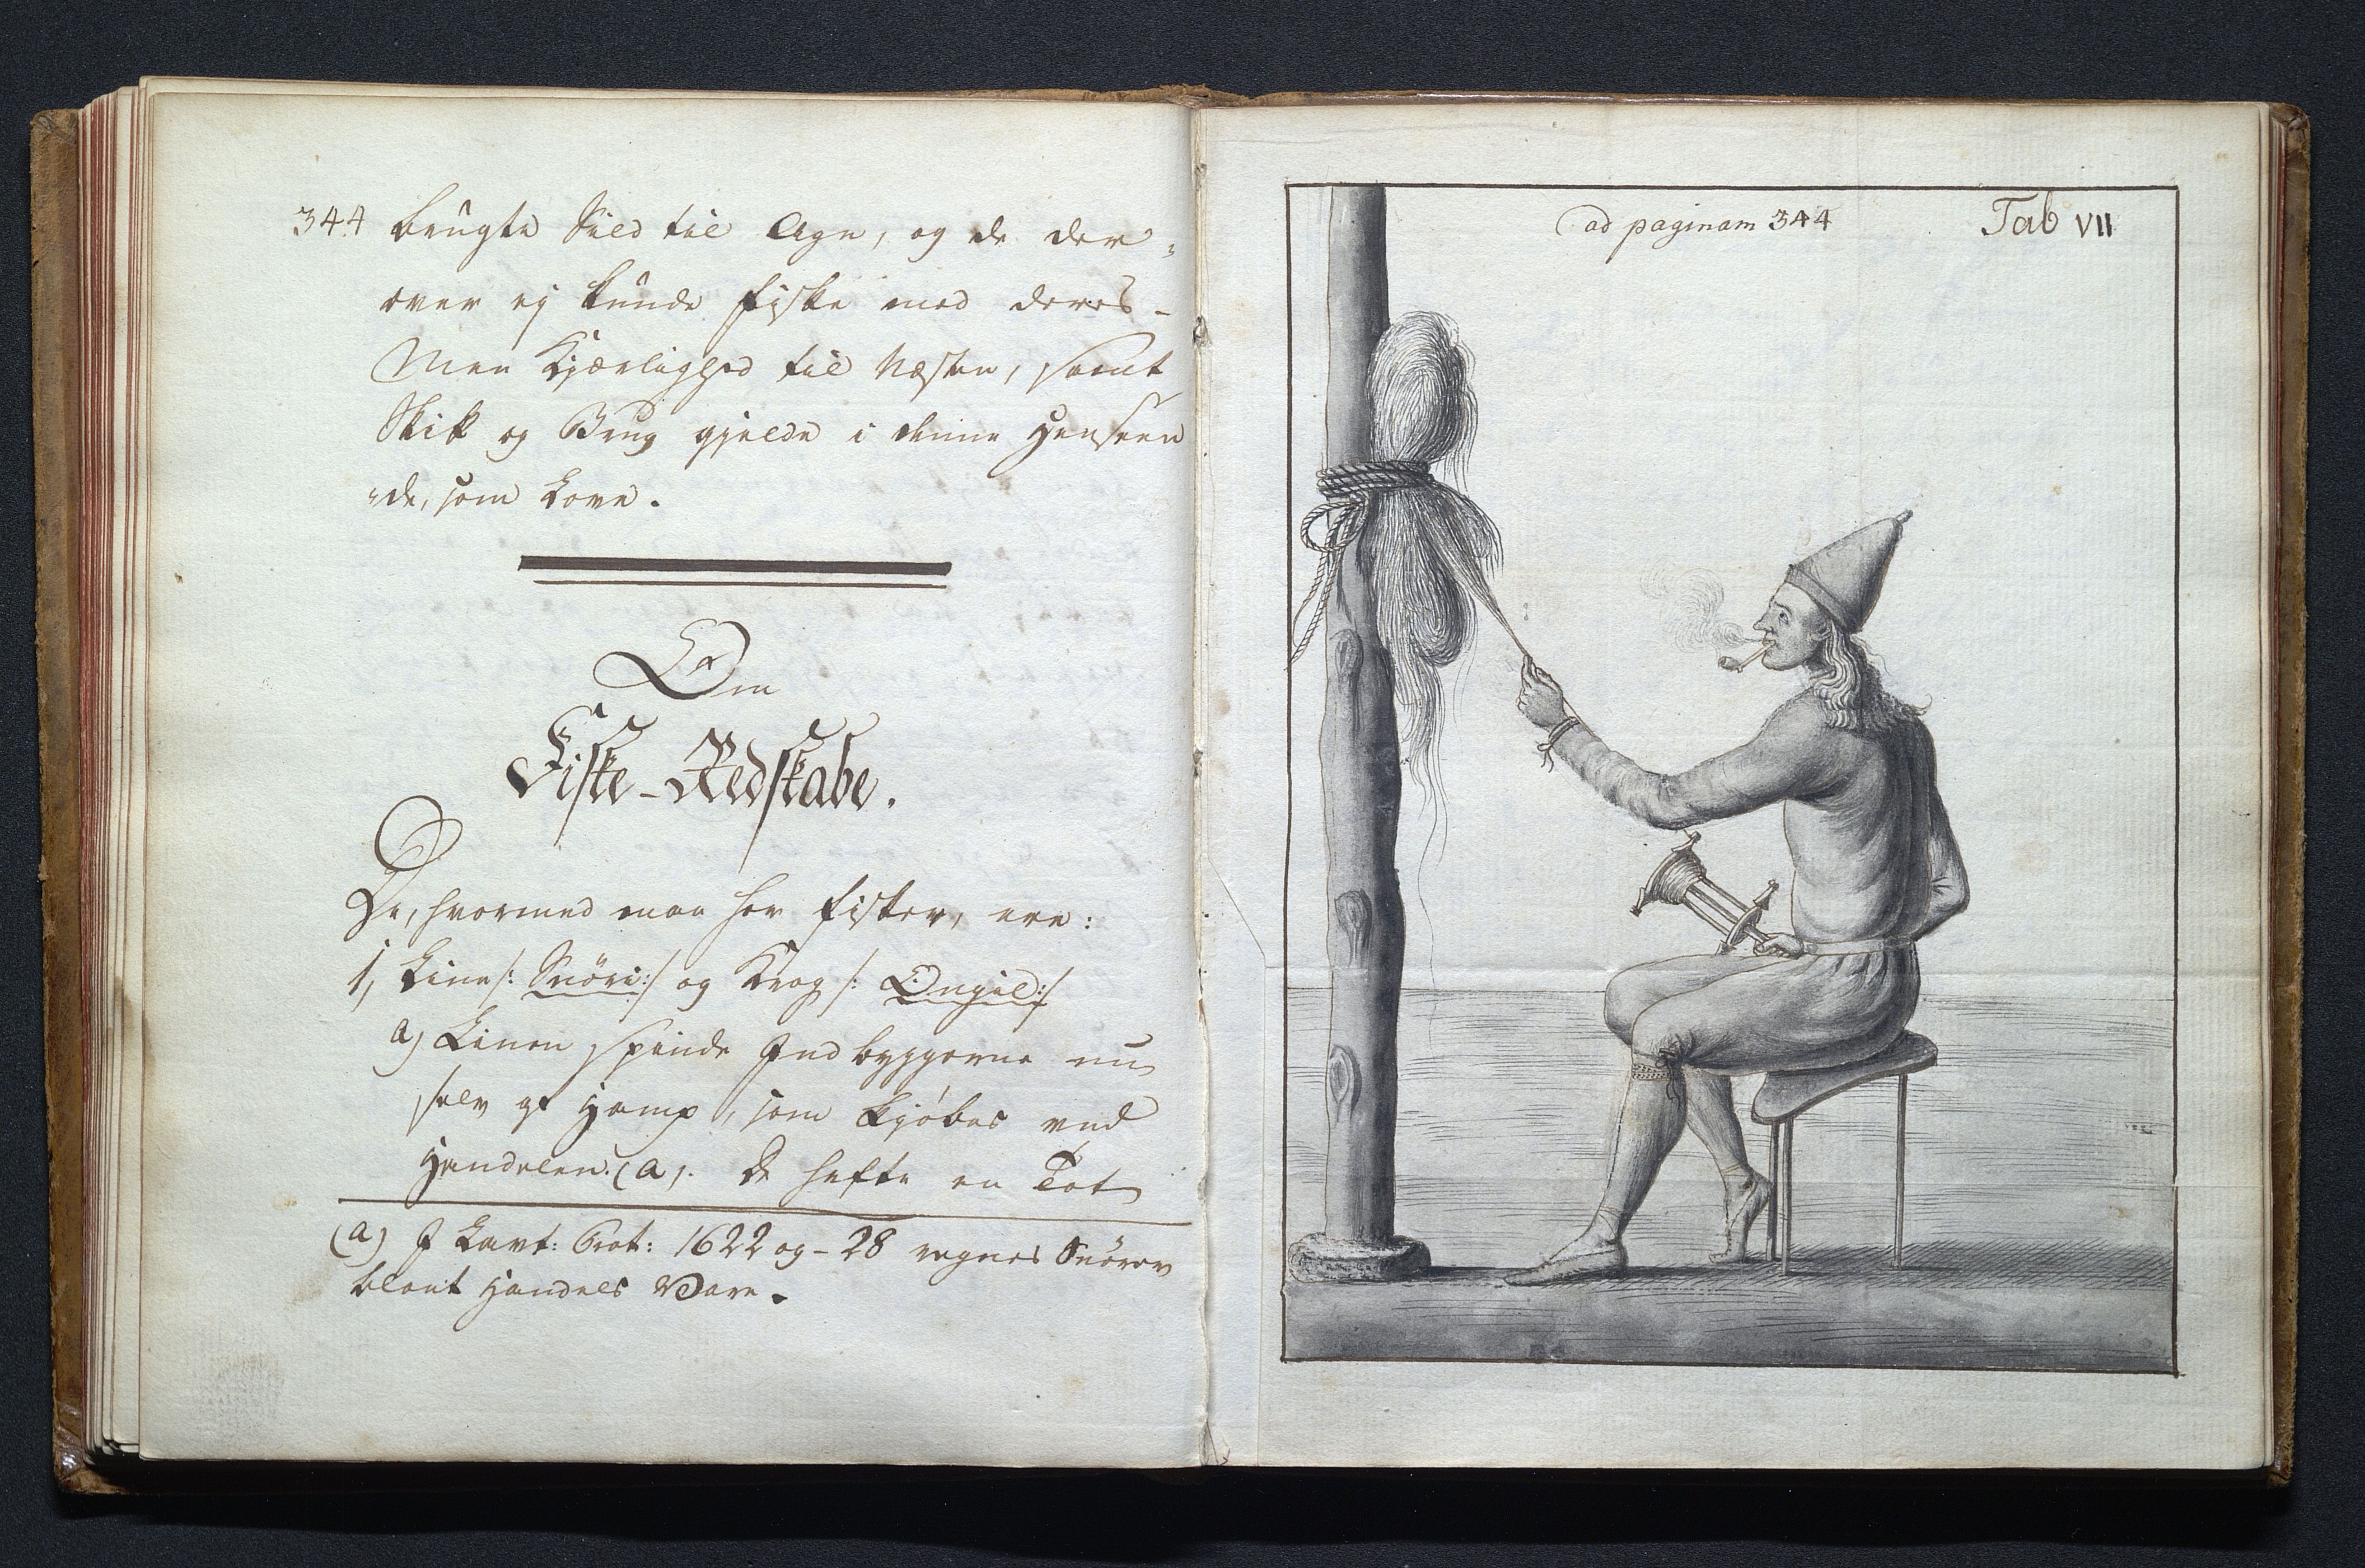 344 brugte Sild til Agn, og de der-
over ej kunde fiske med deres-
Men Kjærlighed til Næsten, samt
Skik og Brug gjelde i denne Henseen
-de, som Love.
Om
Fiske-Redskabe.
De, hvormed man her fisker, ere:
1, Line /: Snöri:/ og Krog /: Ongul:/
a) Linen spinde Indbyggerne nu
selv af Hamp, som kjøbes ved
Handelen. (a). De hefte en Tot
(a) I Kart: Prot: 1622 og -28 regnes Snörer
blant Handels Vare.
ad paginam 344
Tab VII